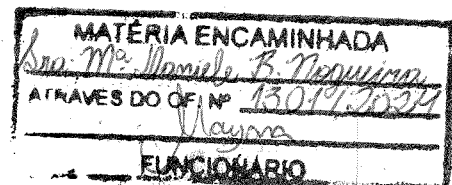 MATÉRIA ENCAMINHADA
Sra. Mª Maniele B. Nogueira
ATRAVÉS DO OF. Nº 1301/2024
Mayara
FUNCIONÁRIO